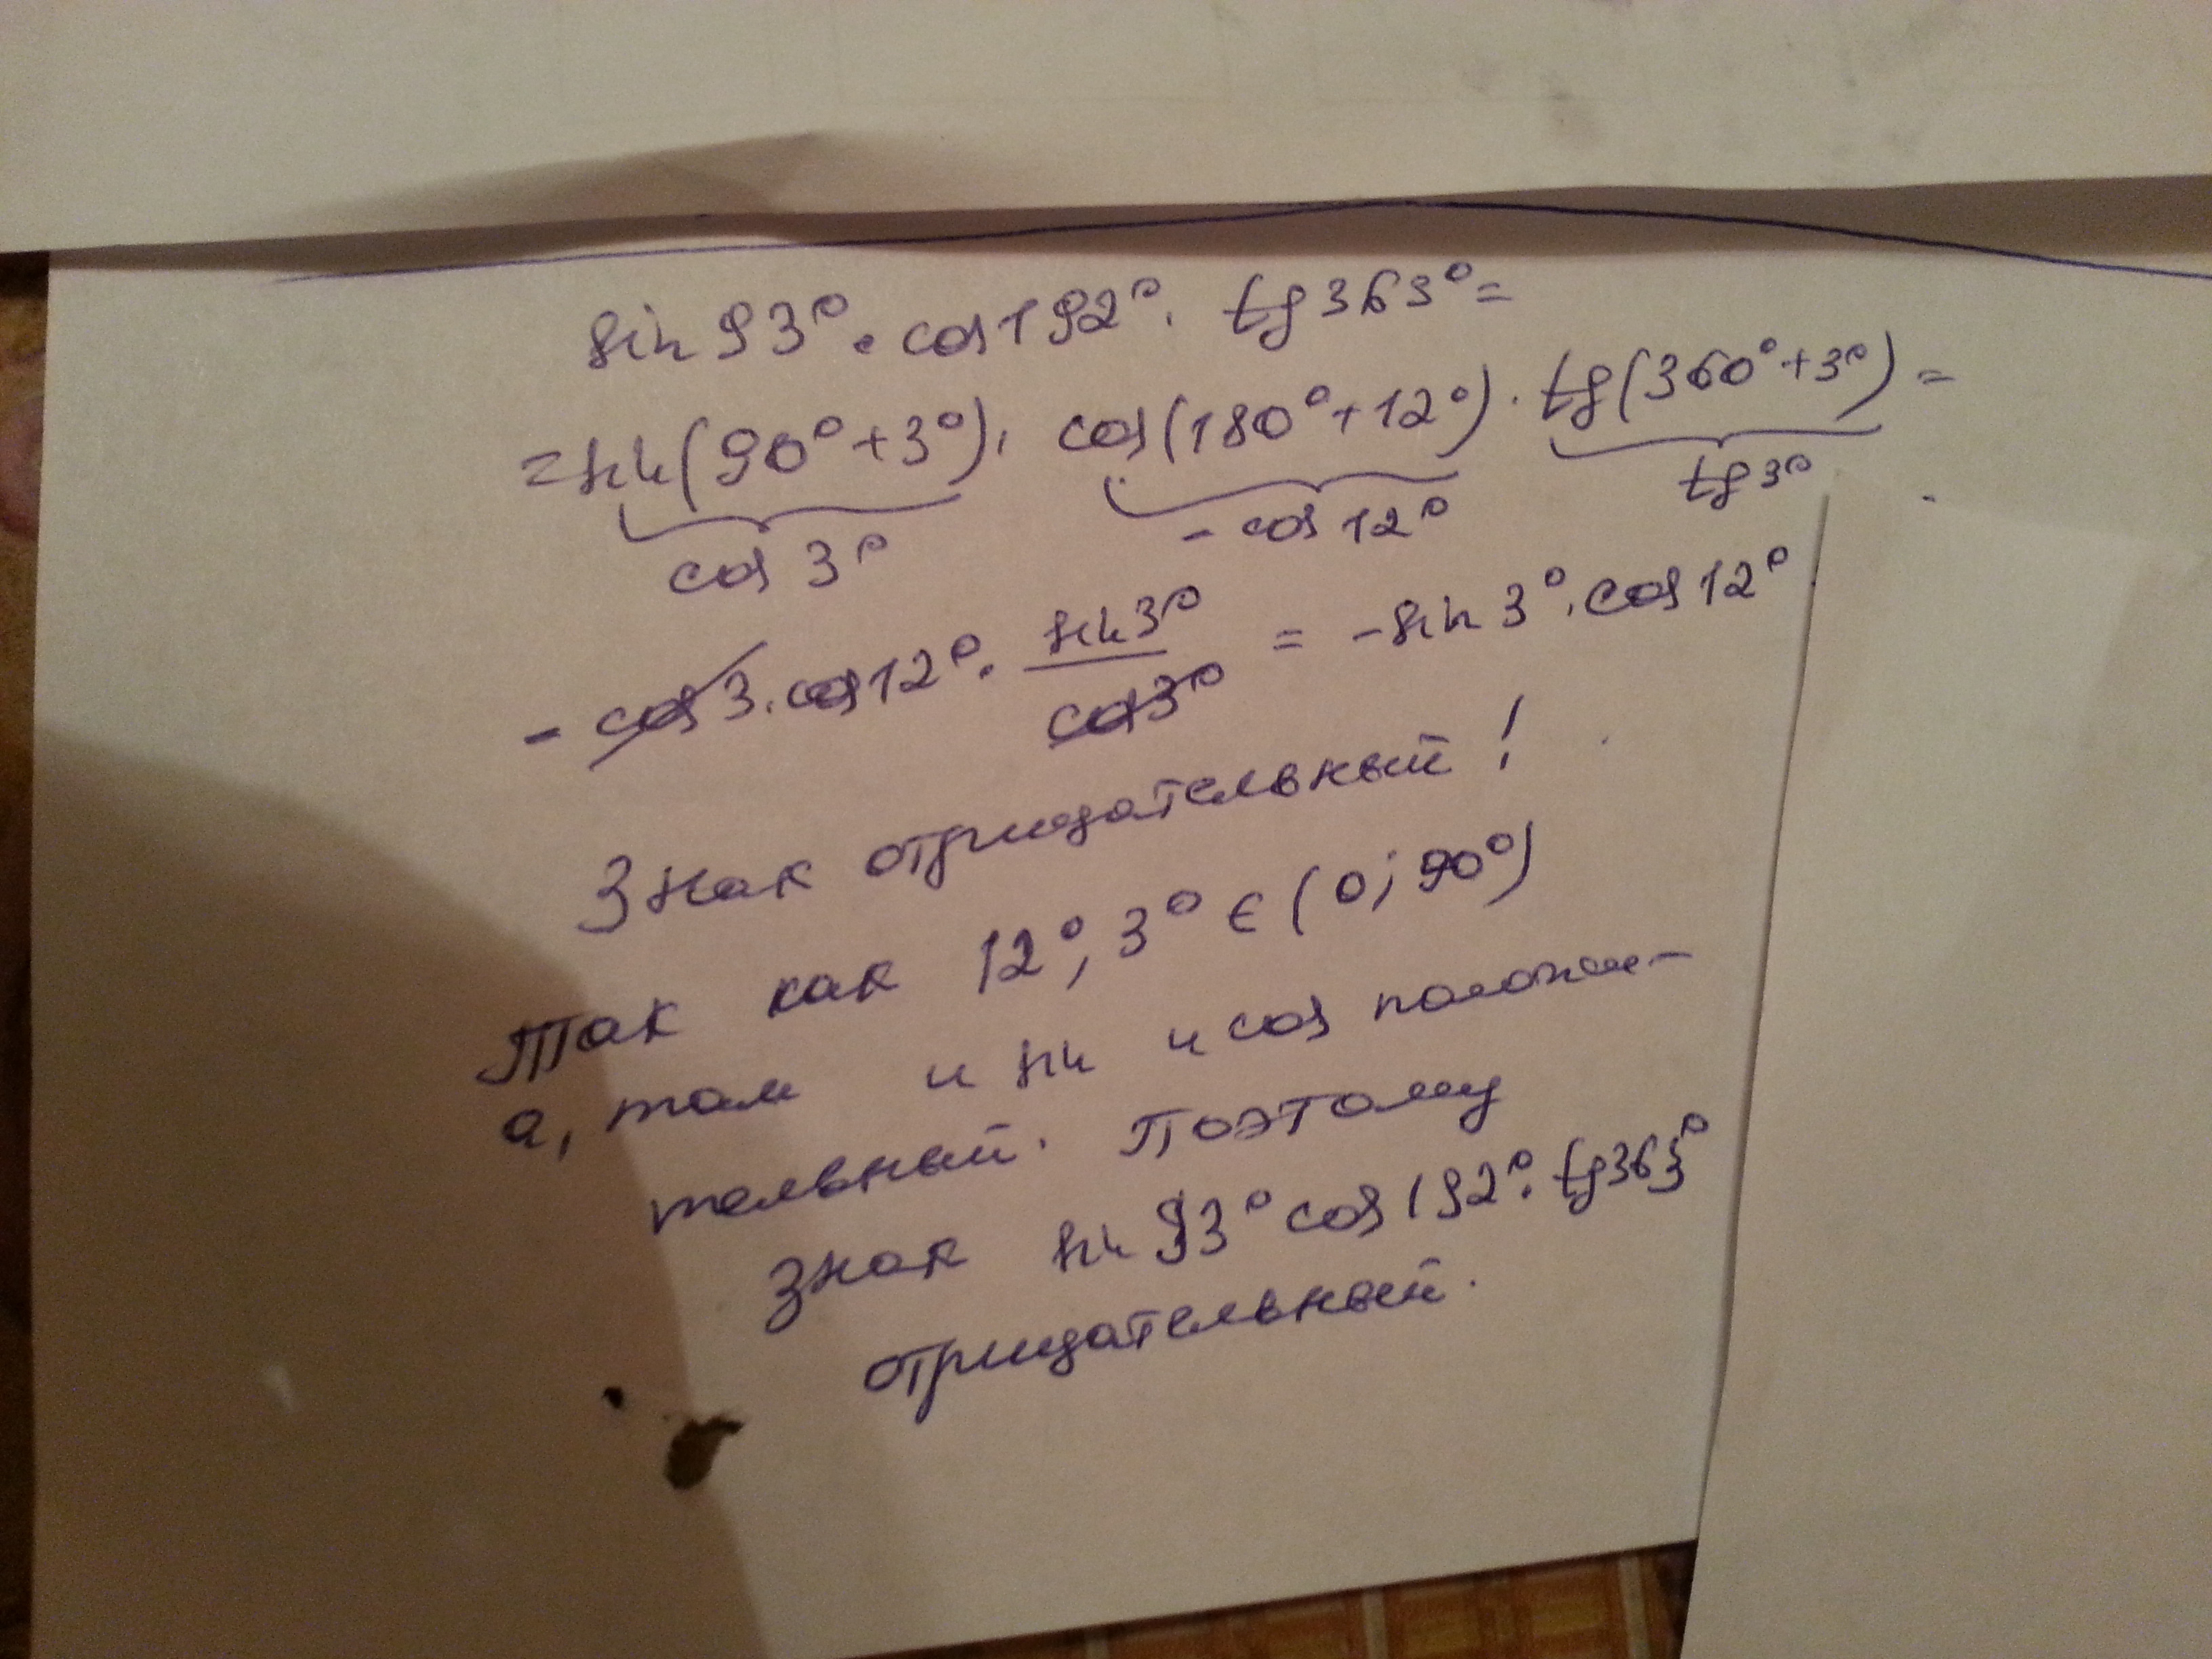 sin 93° · cos 192° · tg 363° =
= sin(90° + 3°) · cos(180° + 12°) · tg(360° + 3°) =
cos 3° - cos 12° tg 3°
- cos 3 · cos 12° · sin 3° / cos 3° = - sin 3° · cos 12°
Знак отрицательный!
Так как 12°, 3° ∈ (0; 90°)
а, там и sin и cos положи-
тельный. Поэтому
знак sin 93° cos 192° · tg 363°
отрицательный.